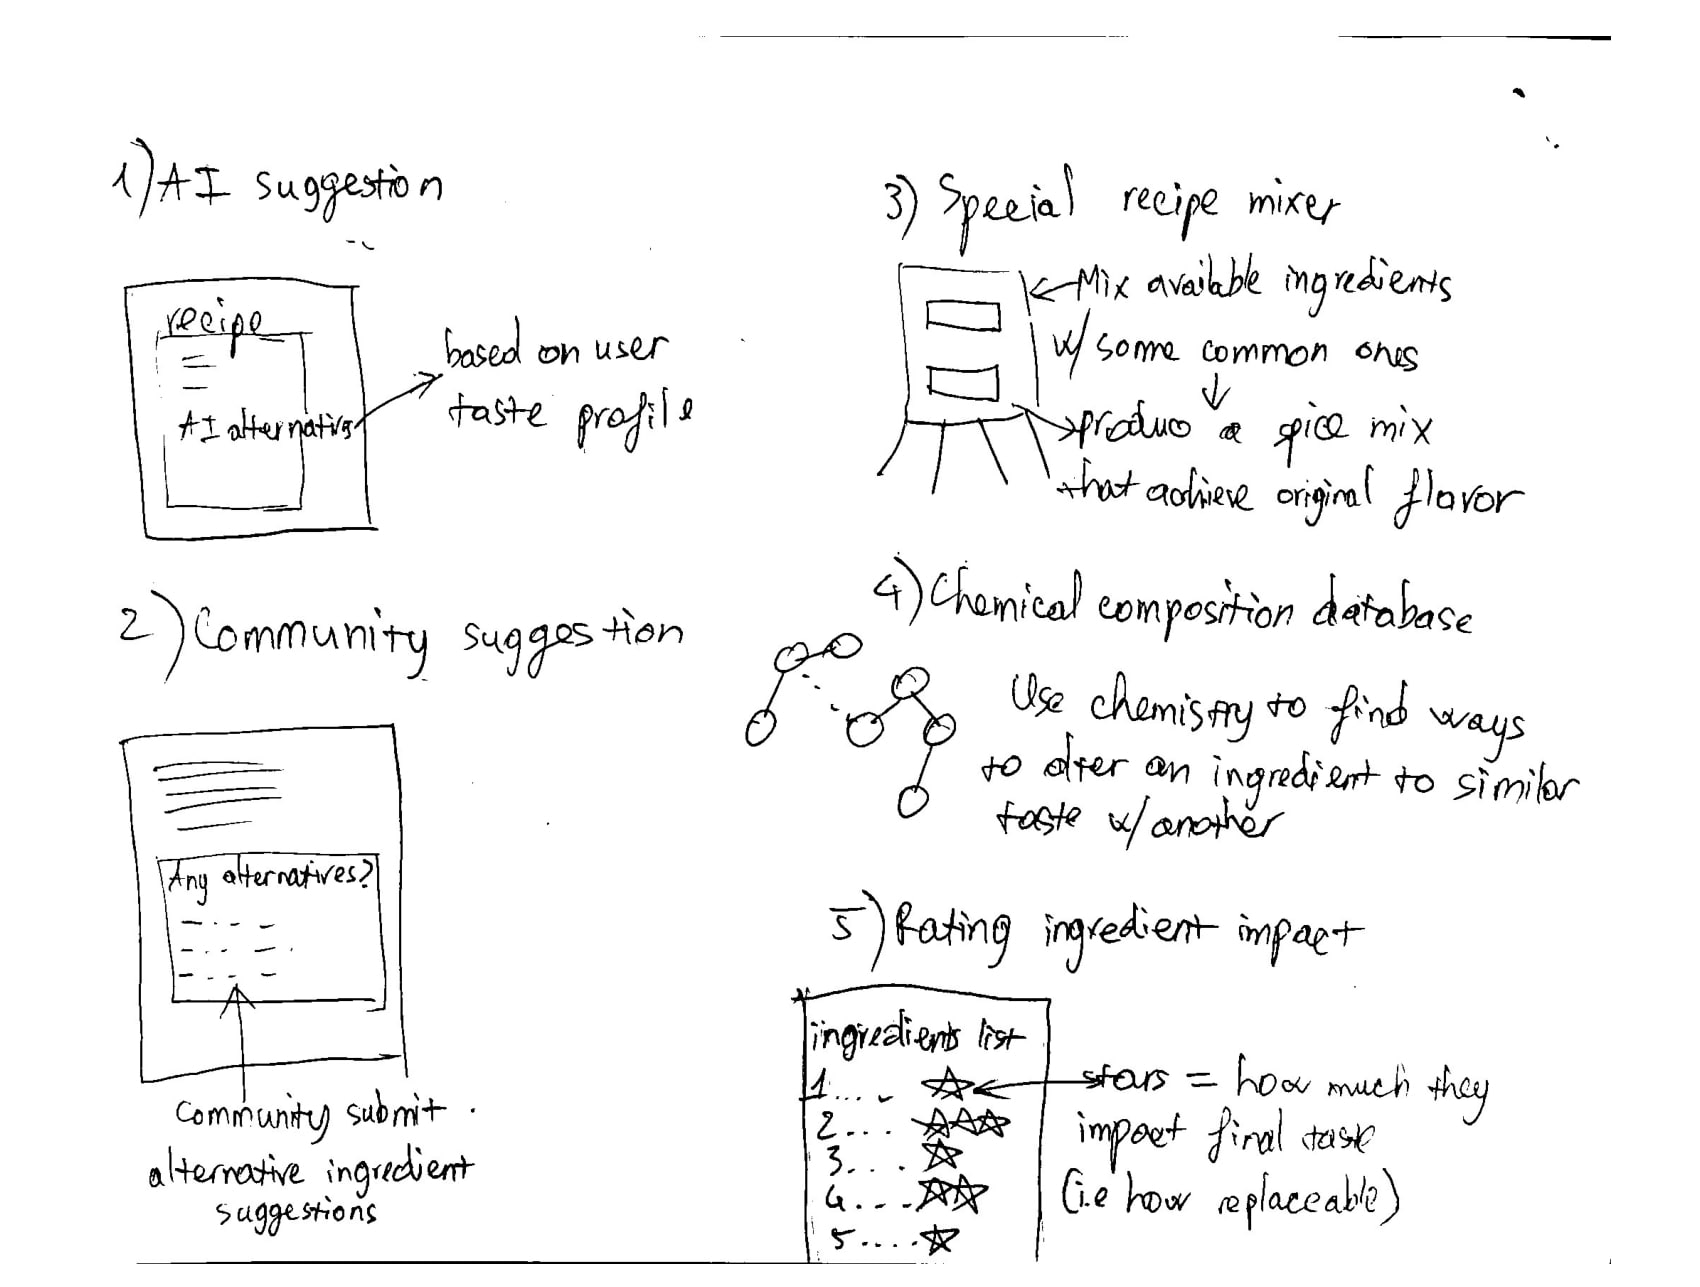 1) AI suggestion
recipe
AI alternative
based on user
taste profile
2) Community suggestion
Any alternatives?
Community submit
alternative ingredient
suggestions
3) Special recipe mixer
Mix available ingredients
w/ some common ones
produce a spice mix
that achieve original flavor
4) Chemical composition database
Use chemistry to find ways
to alter an ingredient to similar
taste w/ another
5) Rating ingredient impact
ingredients list
1....
2...
3....
4....
5....
stars = how much they
impact final taste
(i.e how replaceable)